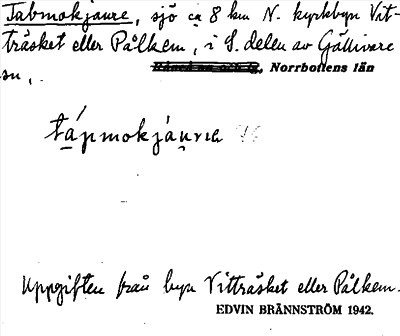 Tabmokjaure, sjö ca 8 km N. kyrkbyn Vit-
träsket eller Pålkem, i S. delen av Gällivare
sn,
Norrbottens län
Uppgiften från byn Vitträsket eller Pålkem.
EDVIN BRÄNNSTRÖM 1942.